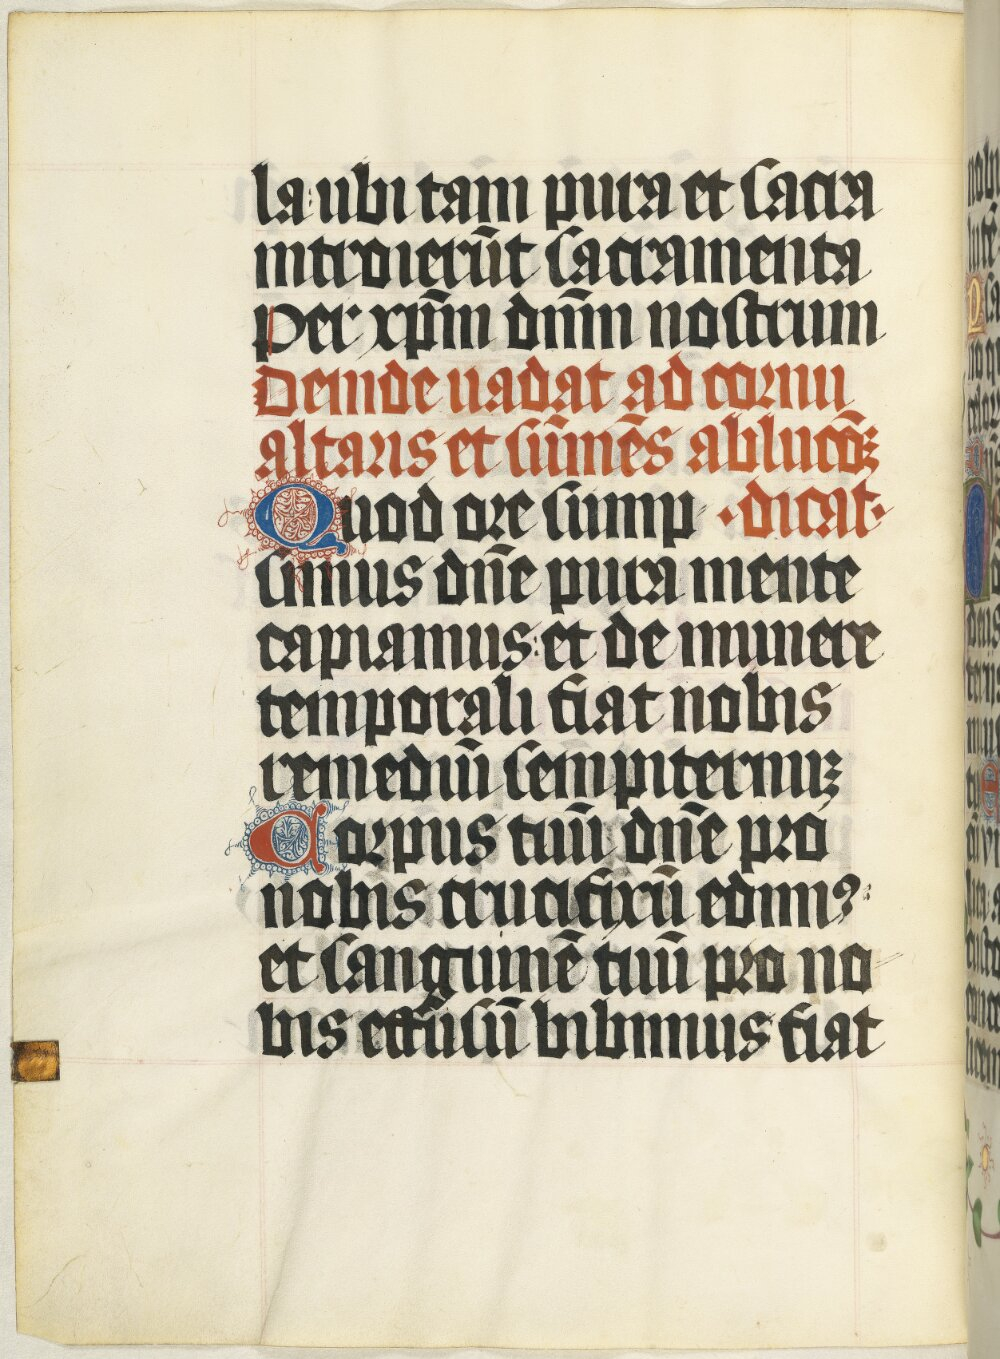 la: ubi tam pura et sacra
introierūt sacramenta
Per xp̄m dn̄m nostrum
Deinde uadat ad cornu
altaris et sūmēs ablucōꝫ
Quod ore sump ·dicat·
simus dn̄e pura mente
capiamus: et de munere
temporali fiat nobis
remediū sempiternuꝫ
Corpus tuū dn̄e pro
nobis crucifixū edim?:
et sanguinē tuū pro no
bis effusū bibimus fiat